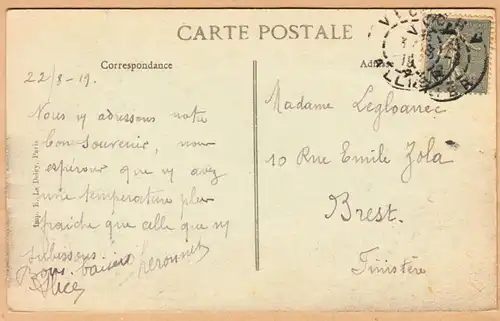 CARTE POSTALE
Correspondance
22/8-19.
Nous vs adressons notre
bon souvenir, nous
espérons que vs avez
une température plus
fraîche que celle que ns
subissons.
Bons baisers
Alice
Madame Legloanec
10 Rue Emile Zola
Brest.
Finistère
Imp. E. Le Deley, Paris
VICHY
ALLIER